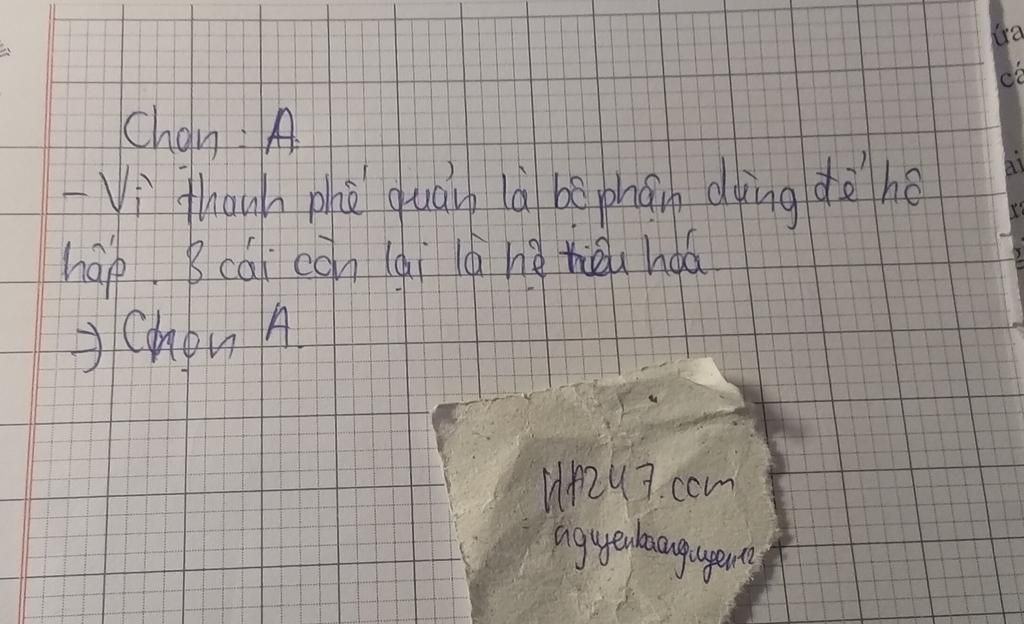 Chọn: A
- Vì thanh phế quản là bộ phận dùng để hô
hấp. 3 cái còn lại là hệ tiêu hoá
=> Chọn A
ứa
cá
ai